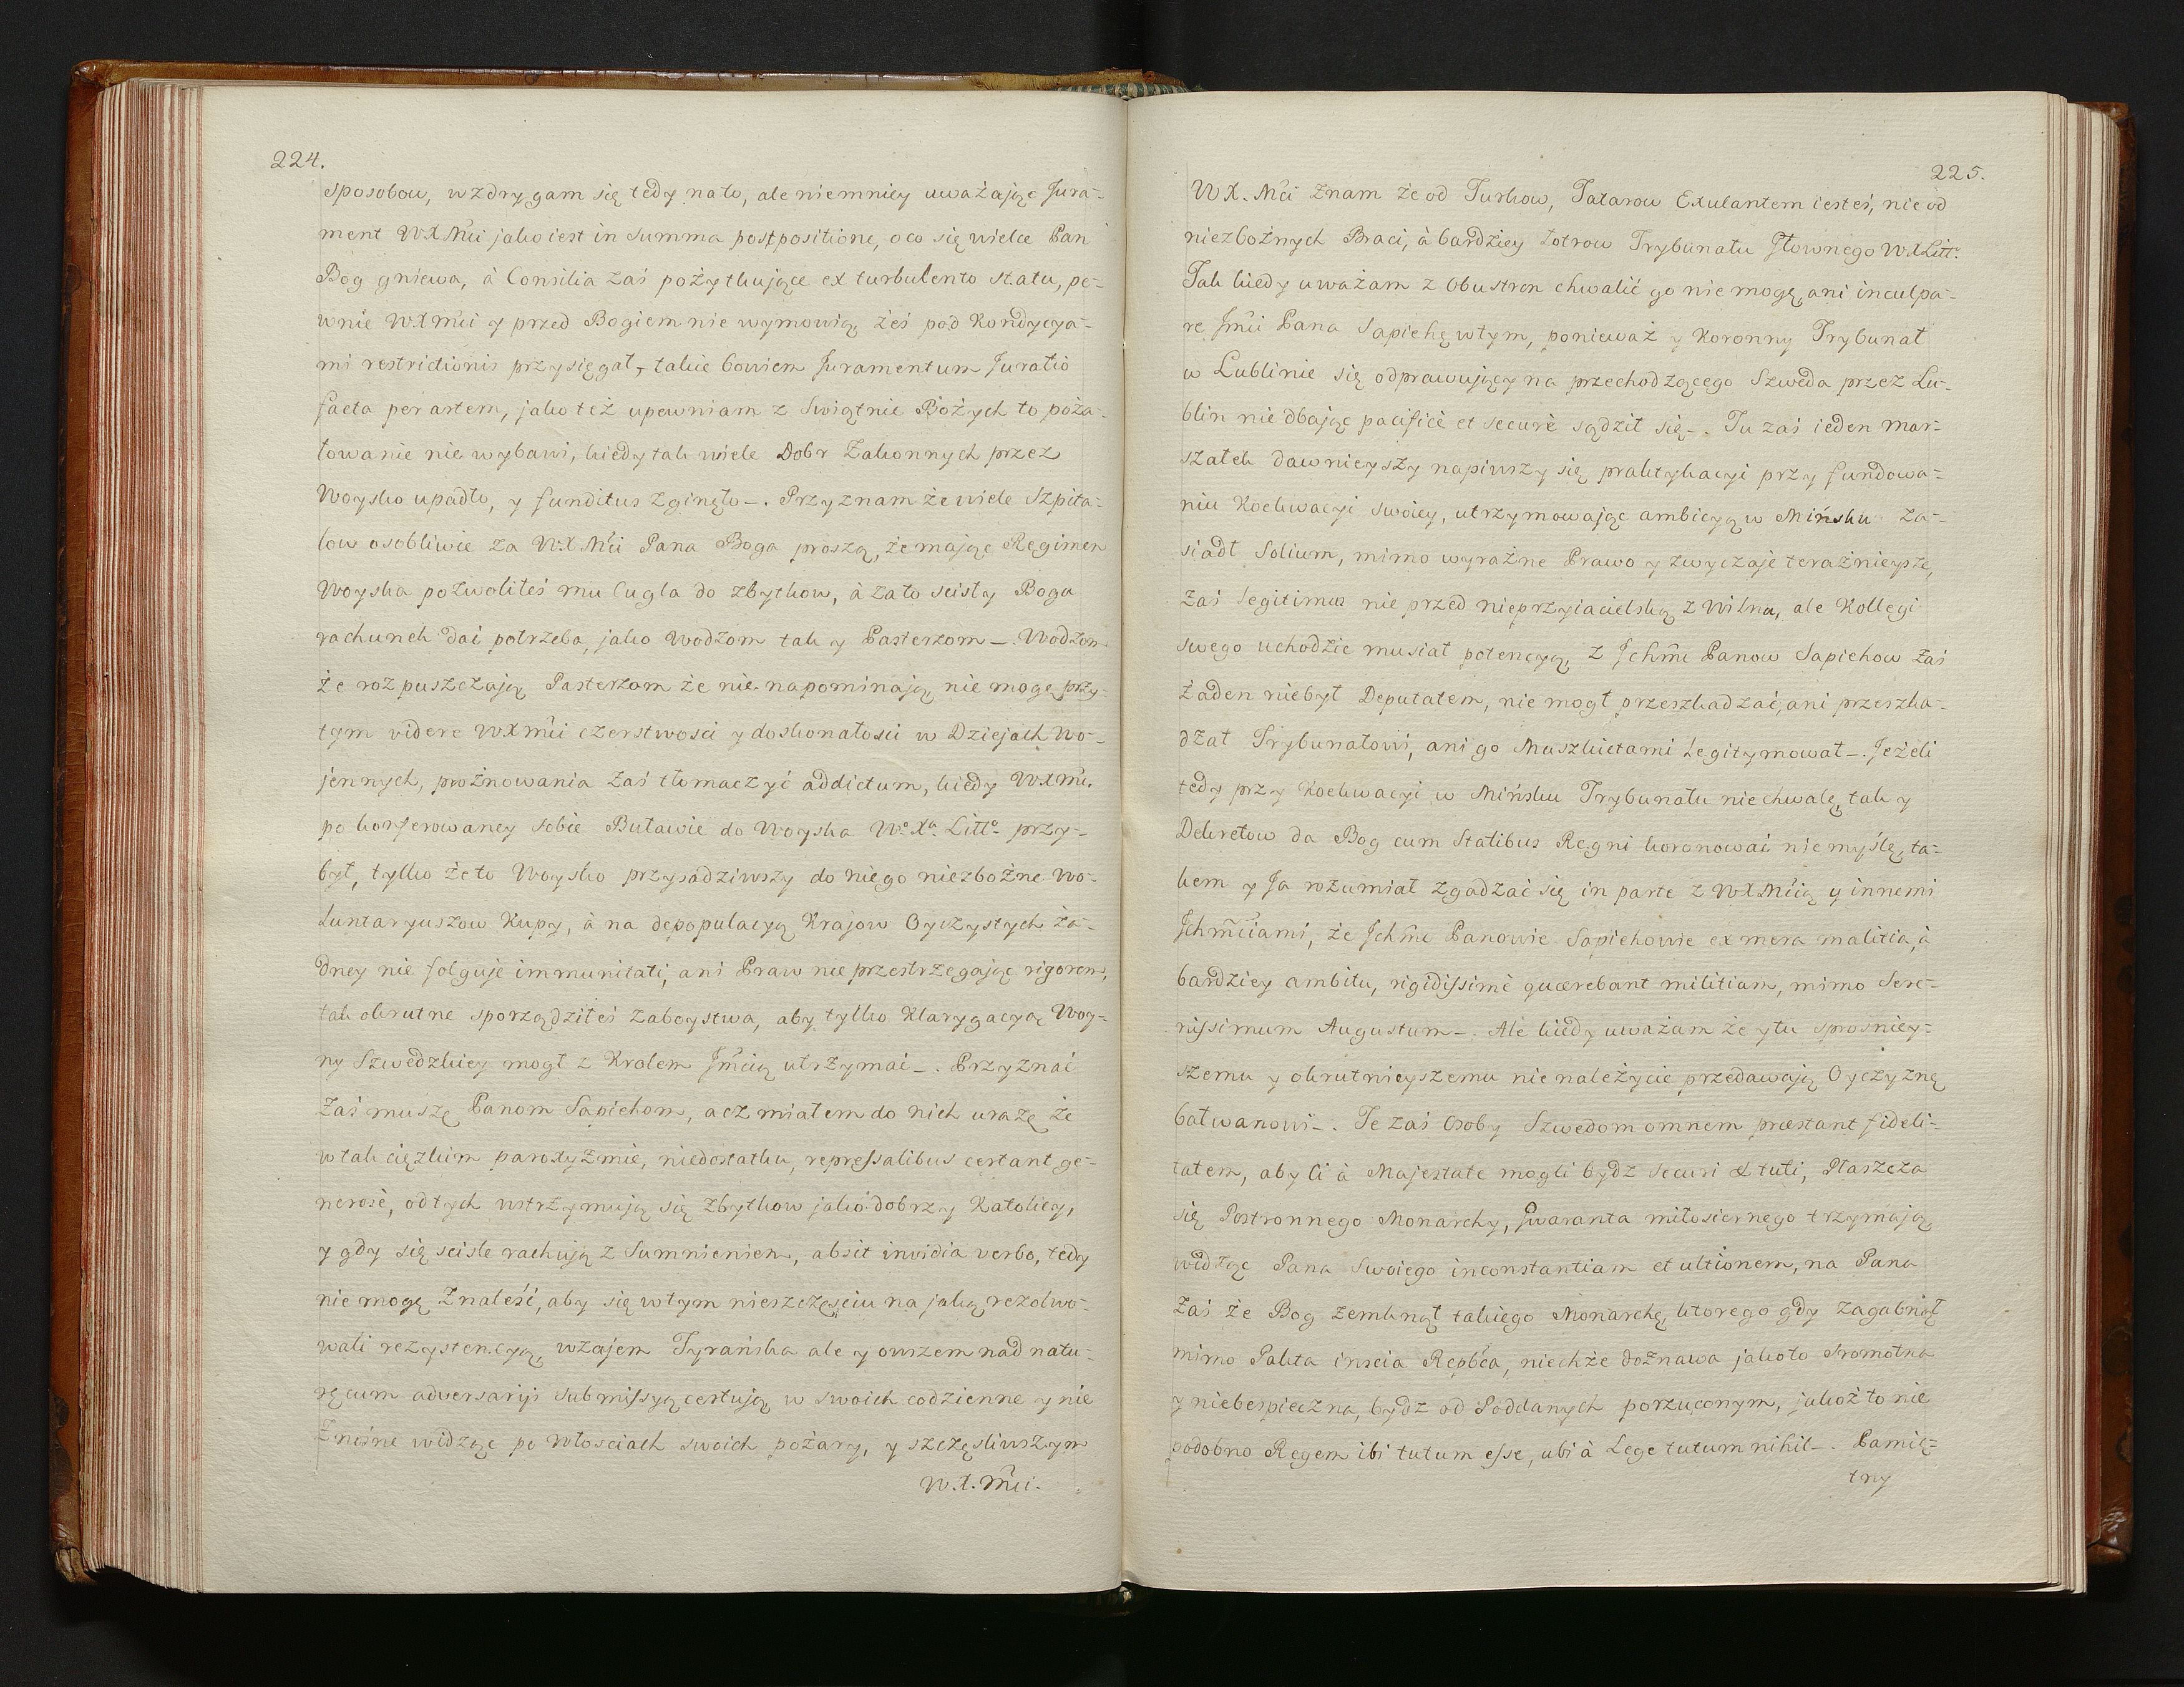 224.
sposobow, wzdrygam się tedy nato, ale niemniey uważając Jura-
ment WXMći jako iest in summa postpositione, o co się wielce Pan
Bog gniewa, à Consilia zaś pożytkujące ex turbulento statu, pe-
wnie WXMći y przed Bogiem nie wymowią, żeś pod Kondycya-
mi restrictionis przysięgał, takie bowiem Juramentum Juratio
facta per artem, jako też upewniam z Swiątnic Bożych to poża-
łowanie nie wybawi, kiedy tak wiele Dobr Zakonnych przez
Woysko upadło, y funditus zginęło—. Przyznam że wiele Szpita-
low osobliwie za WXMći Pana Boga proszą, że mając Regimen
Woyska pozwoliłeś mu Cugla do zbytkow, à zato scisły Bogu
rachunek dać potrzeba, jako Wodzom tak y Pasterzom—. Wodzom
że rozpuszczają Pasterzom że nie napominają, nie mogę przy-
tym videre WXMći czerstwosci y doskonałosci w Dziejach Wo-
jennych, prożnowania zaś tłomaczyć addictum, kiedy WXMć.
po konferowaney sobie Buławie do Woyska Wo. Xa. Litto. przy-
był, tylko że to Woysko przysadziwszy do niego niezbożne Wo-
luntaryuszow Kupy, à na depopulacyą Krajow Oyczystych ża-
dney nie folguje immunitati, ani Praw nie przestrzegając rigorem,
tak okrutne sporządziłeś zaboystwa, aby tylko Klarygacyą Woy-
ny Szwedzkiey mogł z Krolem Jmcią utrzymać—. Przyznać
zaś muszę Panom Sapiehom, acz miałem do nich urazę że
w tak cięzkim paroxyzmie, niedostatku, repressalibus certant ge-
nerosè, od tych wstrzymują się zbytkow jako dobrzy Katolicy,
y gdy się scisle rachują z Sumnieniem, absit invidia verbo, tedy
nie mogę znaleść, aby się w tym nieszczęsciu na jaką rezolwo-
wali rezystencyą, wzajem Tyrańska ale y owszem nad natu-
rę cum adversarijs submissyą certują, w swoich codzienne y nie
Znośne widząc po Włosciach swoich pożary, y szczęsliwszym
W.X.Mći.
225.
WX.Mći znam że od Turkow, Tatarow Exulantem iesteś, nie od
niezbożnych Braci, à bardziey Łotrow Trybunału Głownego WXLitto.
Tak kiedy uważam z Obustron chwalić go nie mogę, ani inculpa-
re Jmći Pana Sapiehę w tym, ponieważ y Koronny Trybunał
w Lublinie się odprawujący na przechodzącego Szweda przez Lu-
blin nie dbając pacificè et securè sądził się—. Tu zaś ieden Mar-
szałek dawnieyszy napiwszy się praktykacyi przy fundowa-
niu Koekwacyi swoiey, utrzymowając ambicyą w Mińsku za-
siadł Solium, mimo wyraźne Prawo y zwyczaje teraźnieysze,
zaś legitimus nie przed nieprzyiacielską z Wilna, ale Kollegi
swego uchodzic musiał potencyą, z Ichmć Panow Sapiehow zaś
żaden niebył Deputatem, nie mogł przeszkadzać, ani przeszka-
dzał Trybunałowi, ani go Muszkietami Legitymował—. Jeżeli
tedy przy Koekwacyi w Mińsku Trybunału nie chwalę, tak y
Dekretow da Bog cum Statibus Regni koronować nie myślę, ta-
kem y Ja rozumiał zgadzać się in parte z WXMćią y innemi
Ichmćiami, że Ichmć Panowie Sapiehowie ex mera malitia, à
bardziey ambitu, rigidissimè quærebant militiam, mimo Sere-
nissimum Augustum—. Ale kiedy uważam że y tu sprosniey-
szemu y okrutnieyszemu nie należycie przedawają Oyczyznę
bałwanowi—. Te zaś Osoby Szwedom omnem præstant fideli-
tatem, aby ći à Majestate mogli bydz securi & tuti, Płaszcza
się Postronnego Monarchy, Gwaranta miłosiernego trzymają,
widząc Pana Swoiego inconstantiam et ultionem, na Pana
zaś że Bog zemknął takiego Monarchę, ktorego gdy zagabnął
mimo Pakta inscia Repbca, niechże doznawa jakoto sromotna
y niebespieczna, bydz od Poddanych porzuconym, jakoż to nie
podobno Regem ibi tutum esse, ubi à Lege tutum nihil—. Pamię-
tny